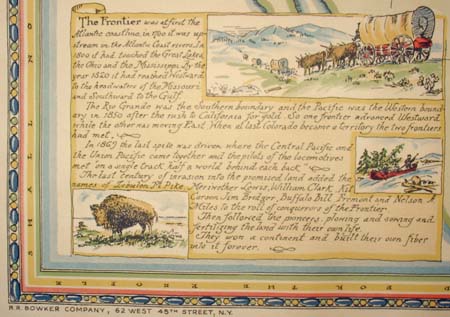 The Frontier was at first the
Atlantic coastline, in 1700 it was up-
stream in the Atlantic Coast rivers. In
1800 it had touched the Great Lakes,
the Ohio and the Mississippi. By the
year 1820 it had reached Westward
to the headwaters of the Missouri
and Southward to the Gulf.
The Rio Grande was the Southern boundary and the Pacific was the Western bound-
ary in 1850 after the rush to California for gold. So one frontier advanced Westward
while the other was moving East. When at last Colorado became a territory the two frontiers
had met.
In 1869 the last spike was driven where the Central Pacific and
the Union Pacific came together and the pilots of the locomotives
met "on a single track, half a world behind each back."
The last century of invasion into the promised land added the
names of Zebulon M. Pike, Meriwether Lewis, William Clark, Kit
Carson, Jim Bridger, Buffalo Bill, Fremont and Nelson A.
Miles to the roll of conquerors of the Frontier.
Then followed the pioneers, plowing and sowing and
fertilizing the land with their own life.
They won a continent and built their own fiber
into it forever.
R.R. BOWKER COMPANY, 62 WEST 45TH STREET, N.Y.